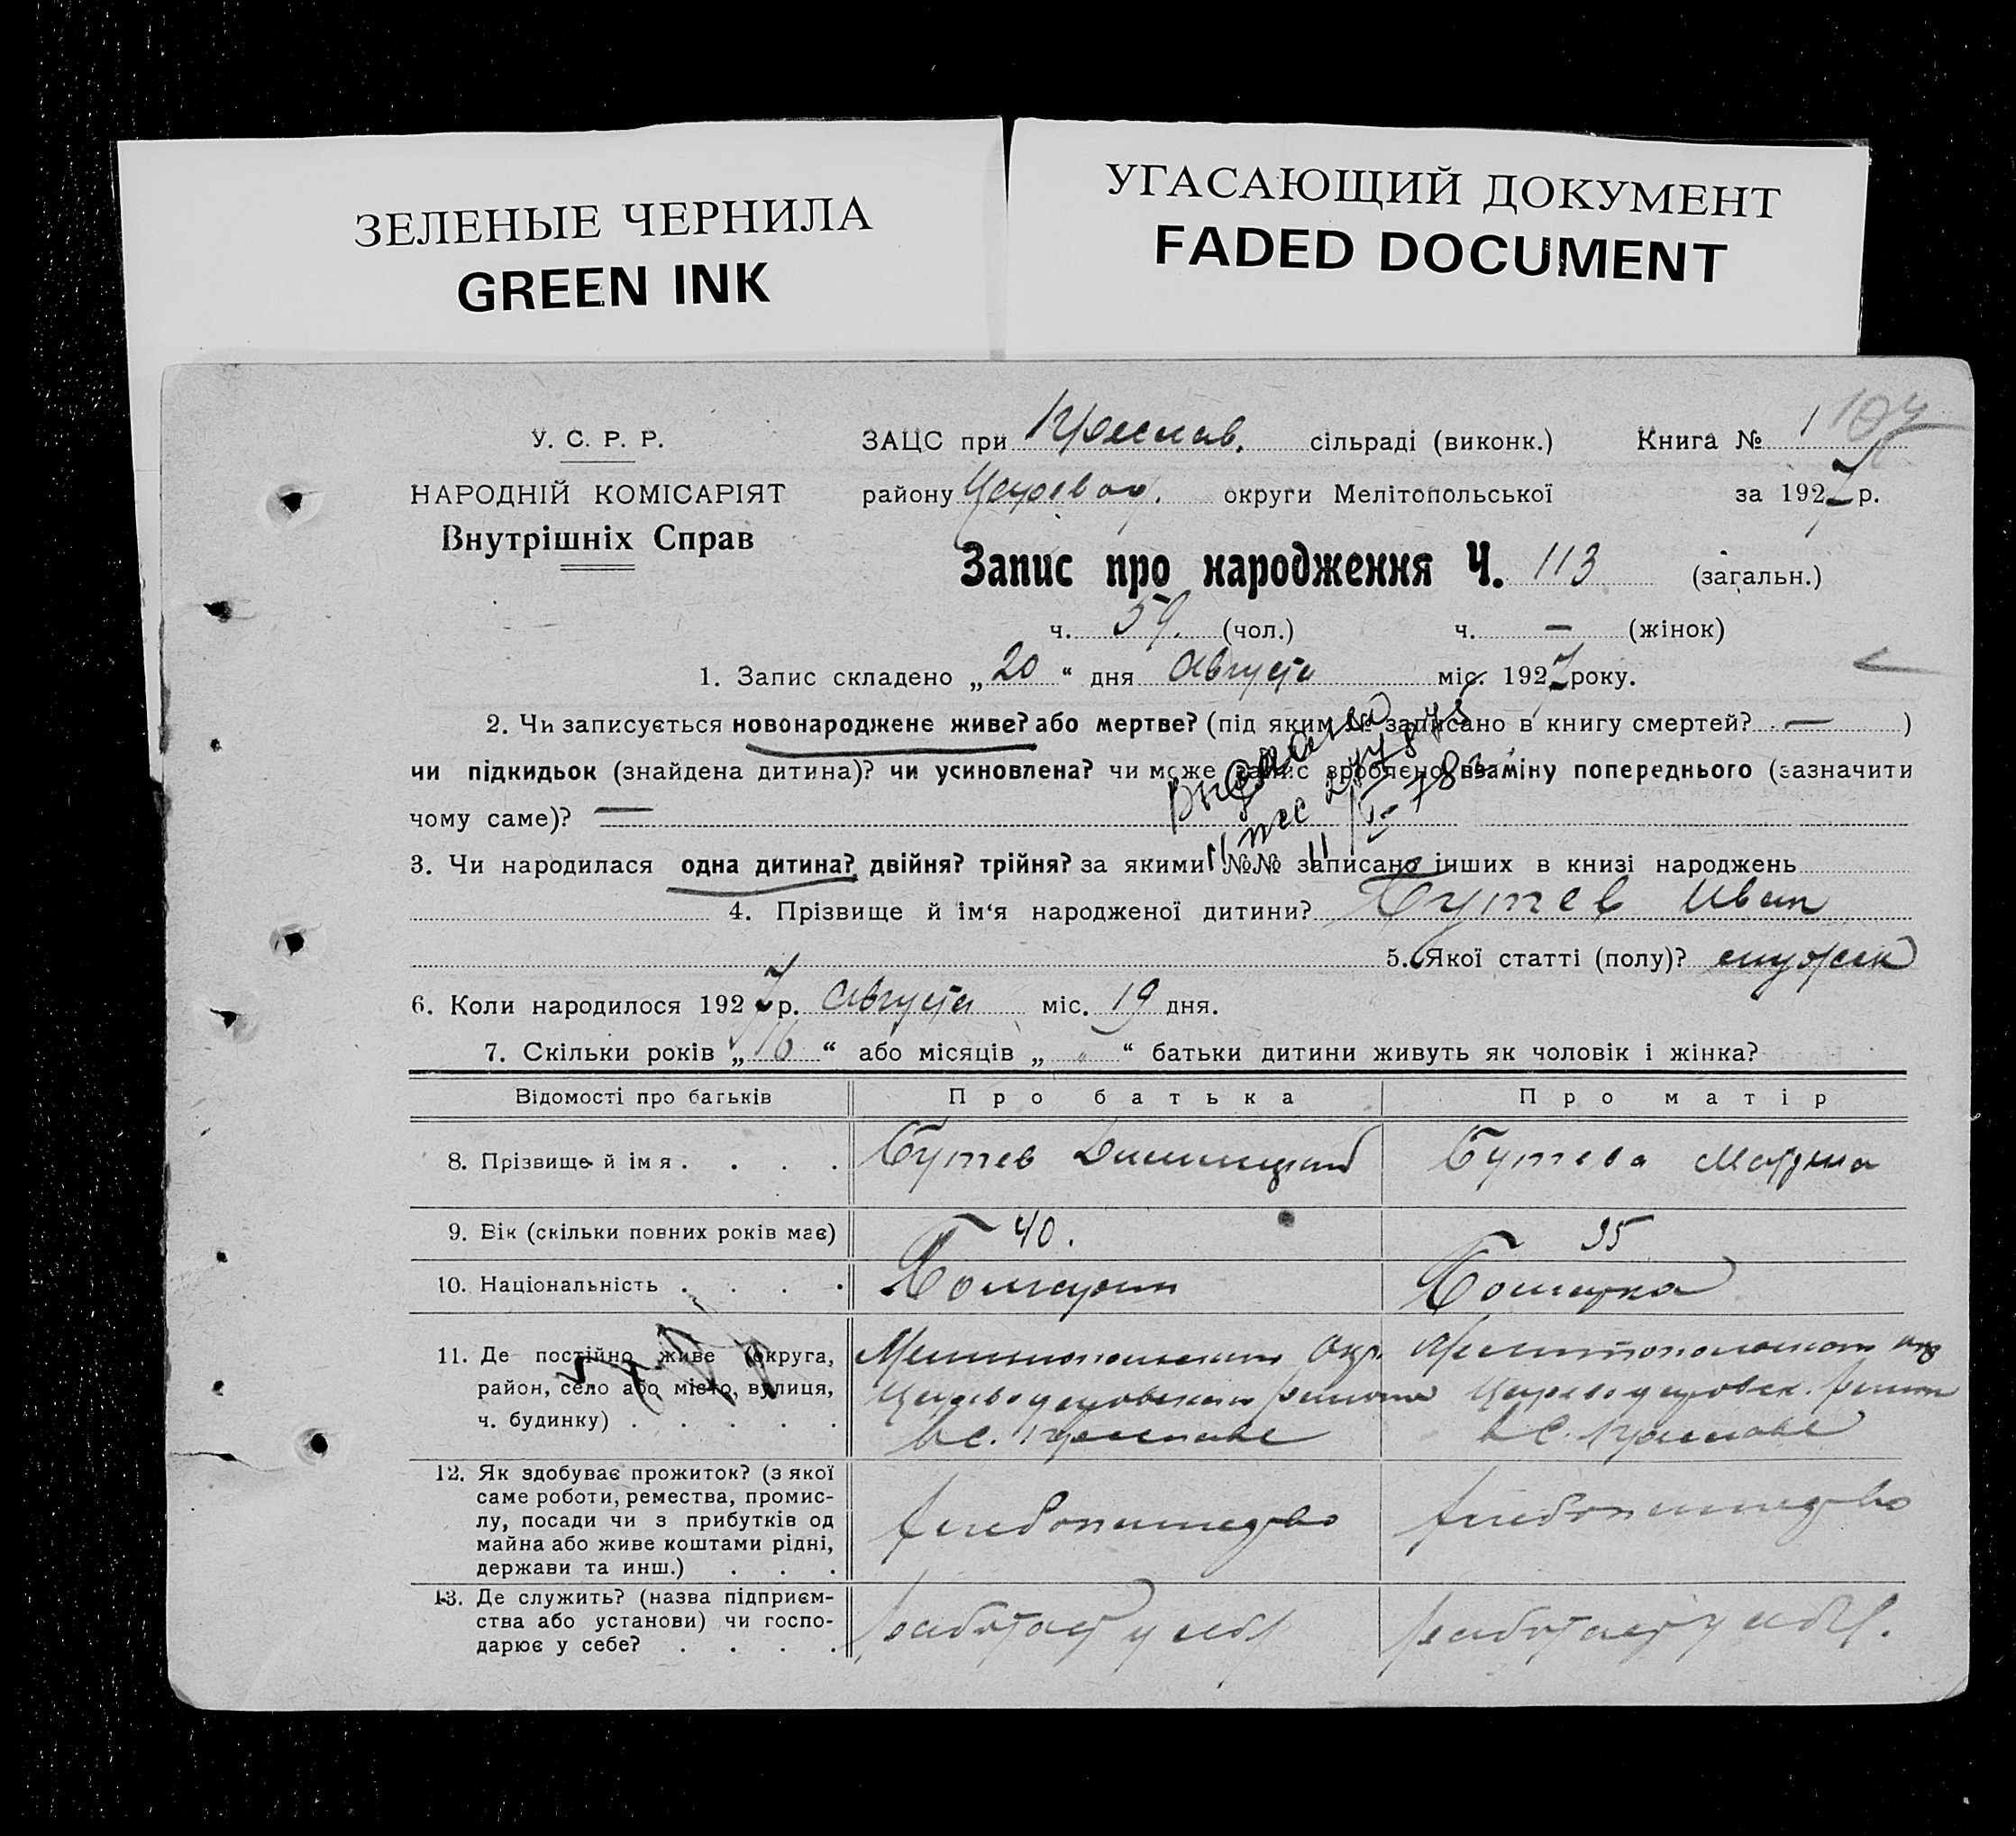 ЗЕЛЕНЫЕ ЧЕРНИЛА
GREEN INK
УГАСАЮЩИЙ ДОКУМЕНТ
FADED DOCUMENT
У. С. Р. Р.
НАРОДНІЙ КОМІСАРІЯТ
Внутрішніх Справ
ЗАЦС при сільраді (виконк.) Книга № 1
району округи Мелітопольської за 1927 р.
Запис про народження Ч. 113 (загальн.)
ч. 59. (чол.) ч. — (жінок)
1. Запис складено „ 20 “ дня Августа міс. 1927 року.
2. Чи записується новонароджене живе? або мертве? (під яким № записано в книгу смертей? — )
чи підкидьок (знайдена дитина)? чи усиновлена? чи може запис зроблено взаміну попереднього (зазначити
чому саме)? —
3. Чи народилася одна дитина? двійня? трійня? за якими №№ записано інших в книзі народжень
4. Прізвище й ім‘я народженої дитини? Бутев Иван
5. Якої статті (полу)? мужск
6. Коли народилося 1927 р. Августа міс. 19 дня.
7. Скільки років „ 16 “ або місяців „ “ батьки дитини живуть як чоловік і жінка?
Відомості про батьків Про батька Про матір
8. Прізвище й імя . . . . Бутев Димитрий Бутева Марина
9. Вік (скільки повних років має) 40. 35
10. Національність . . . . Болгарин Болгарка
11. Де постійно живе (округа, Мелитопольского окр. Мелитопольского окр
район, село або місто, вулиця, Цареводаровского района Цареводаровск. района
ч. будинку) . . . . . в с.  в с.
12. Як здобуває прожиток? (з якої
саме роботи, ремества, промис-
лу, посади чи з прибутків од хлебопашество хлебопашество
майна або живе коштами рідні,
держави та инш.) . . .
13. Де служить? (назва підприєм-
ства або установи) чи госпо- работает у себя работает у себя.
дарює у себе? . . . .